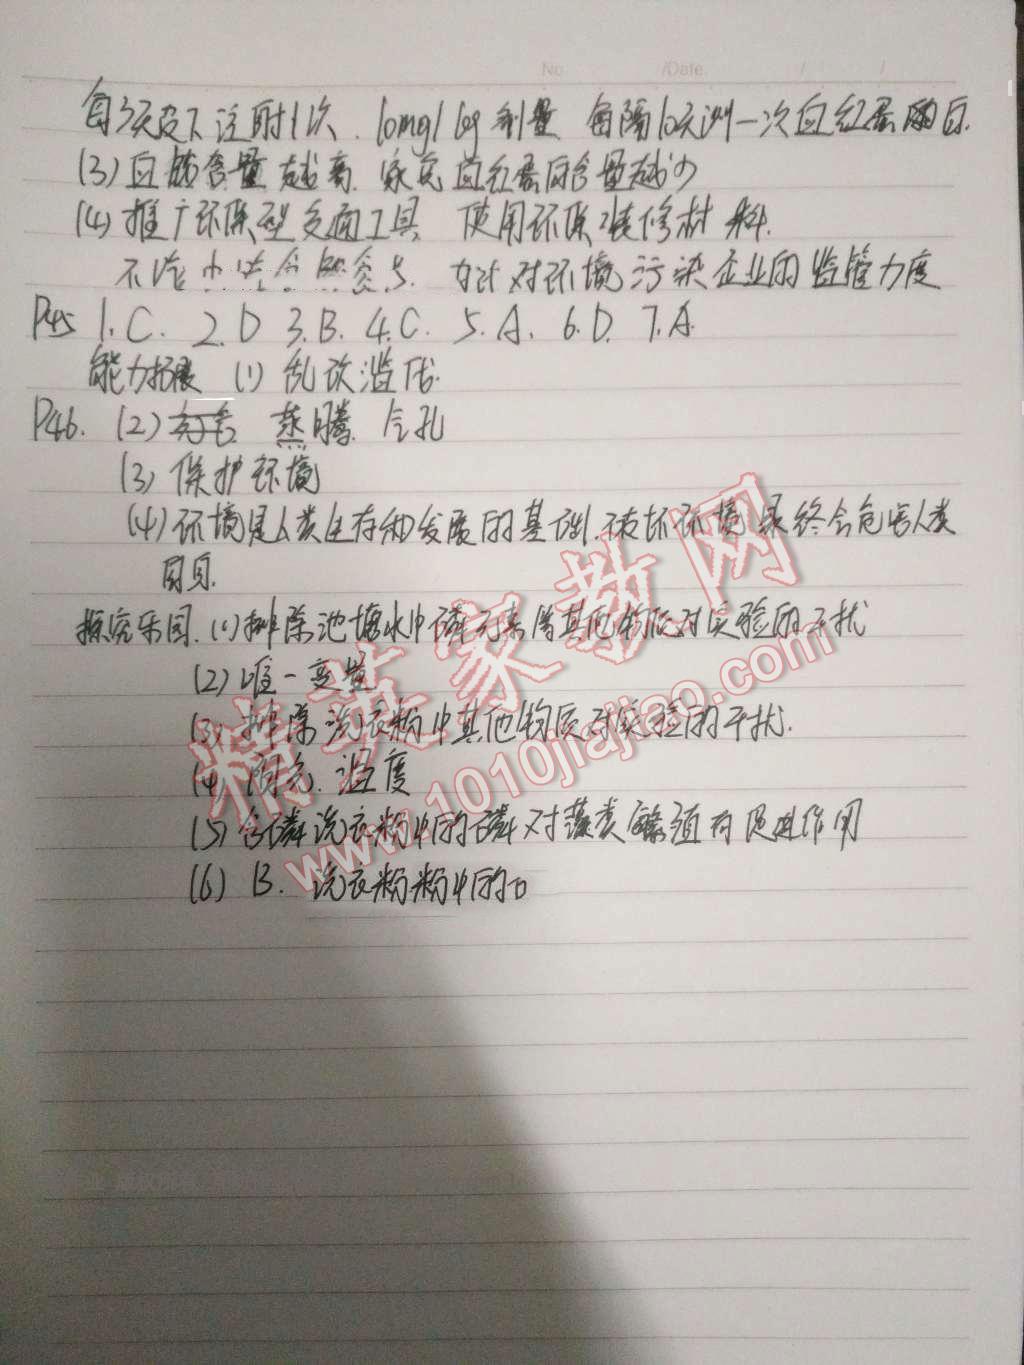 No /Date. / /
每3天皮下注射1次. 10mg/kg剂量 每隔10天测一次血红蛋白.
(3)血铅含量越高. 家兔血红蛋白含量越少
(4)推广环保型交通工具 使用环保装修材料.
不 加大对环境污染企业的监管力度
P45 1.C. 2.D 3.B. 4.C. 5.A. 6.D. 7.A.
能力拓展 (1)乱砍滥伐.
P46. (2) 蒸腾. 气孔
(3)保护环境
(4)环境是人类生存和发展的基础.破坏环境最终会危害人类
自身.
探究乐园.(1)排除池塘水中磷元素等其他物质对实验的干扰
(2)唯一变量
(3)排除洗衣粉中其他物质对实验的干扰.
(4 阳光.温度
(5)含磷洗衣粉中的磷对藻类繁殖有促进作用
(6) B. 洗衣粉粉中的
精英家教网
www.1010jiajiao.com